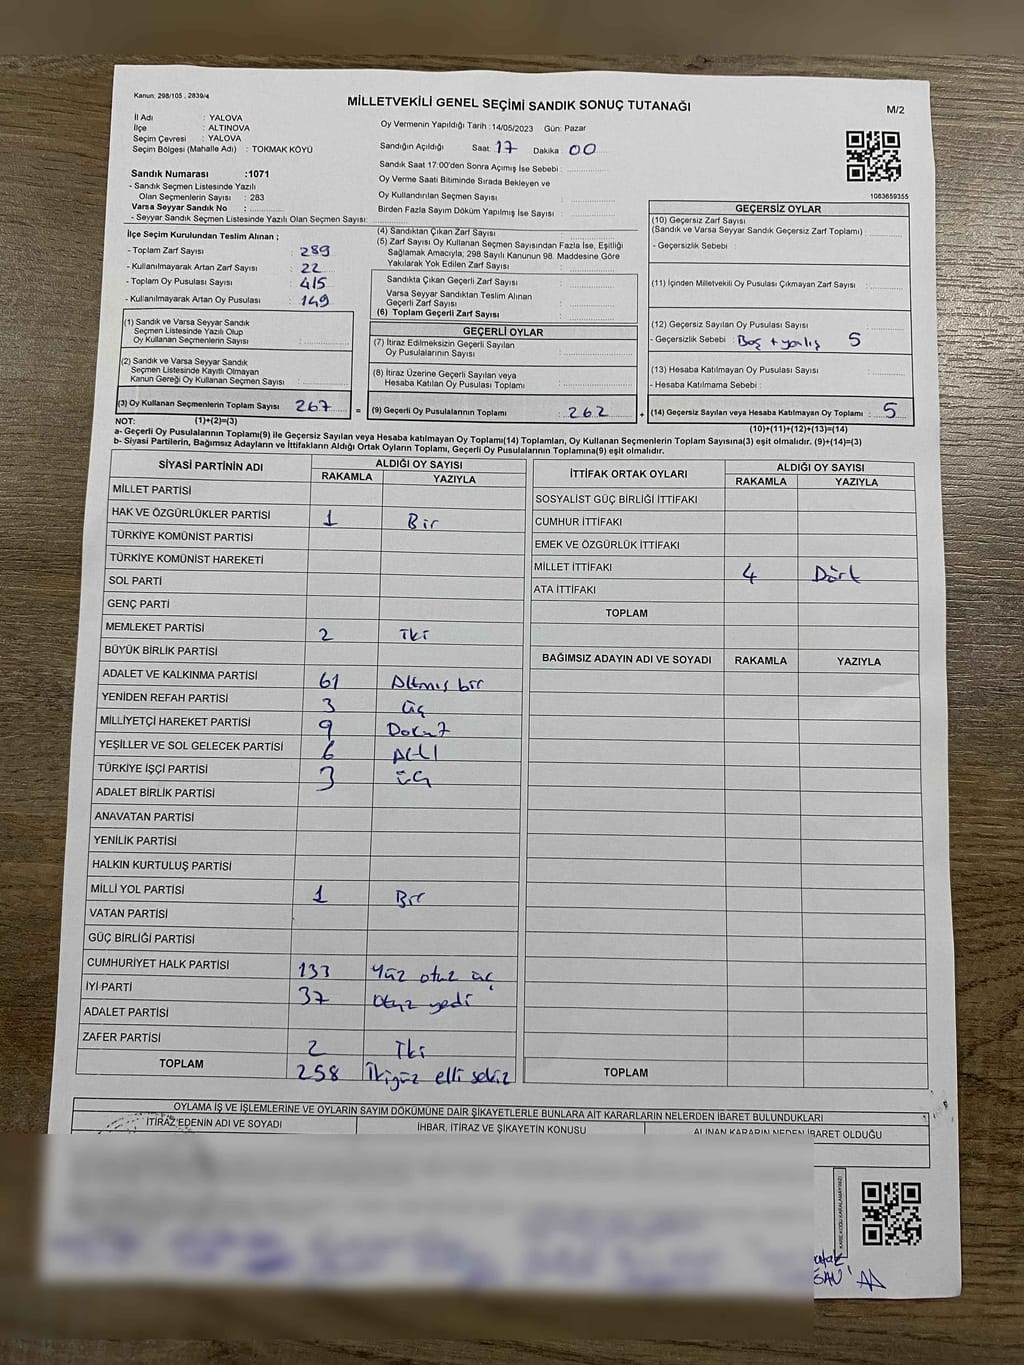 Kanun: 298/105 , 2839/4
MİLLETVEKİLİ GENEL SEÇİMİ SANDIK SONUÇ TUTANAĞI
M/2
İl Adı : YALOVA
İlçe : ALTINOVA
Seçim Çevresi : YALOVA
Seçim Bölgesi (Mahalle Adı) : TOKMAK KÖYÜ
Sandık Numarası :1071
- Sandık Seçmen Listesinde Yazılı
Olan Seçmenlerin Sayısı : 283
Varsa Seyyar Sandık No :
- Seyyar Sandık Seçmen Listesinde Yazılı Olan Seçmen Sayısı:
Oy Vermenin Yapıldığı Tarih : 14/05/2023 Gün: Pazar
Sandığın Açıldığı Saat 17 Dakika 00
Sandık Saat 17:00'den Sonra Açımış İse Sebebi :
Oy Verme Saati Bitiminde Sırada Bekleyen ve
Oy Kullandırılan Seçmen Sayısı :
Birden Fazla Sayım Döküm Yapılmış İse Sayısı :
1083659355
İlçe Seçim Kurulundan Teslim Alınan ;
- Toplam Zarf Sayısı : 289
- Kullanılmayarak Artan Zarf Sayısı : 22
- Toplam Oy Pusulası Sayısı : 415
- Kullanılmayarak Artan Oy Pusulası : 149
(1) Sandık ve Varsa Seyyar Sandık
Seçmen Listesinde Yazılı Olup
Oy Kullanan Seçmenlerin Sayısı :
(2) Sandık ve Varsa Seyyar Sandık
Seçmen Listesinde Kayıtlı Olmayan
Kanun Gereği Oy Kullanan Seçmen Sayısı :
(3) Oy Kullanan Seçmenlerin Toplam Sayısı : 267
(1)+(2)=(3)
(4) Sandıktan Çıkan Zarf Sayısı :
(5) Zarf Sayısı Oy Kullanan Seçmen Sayısından Fazla İse, Eşitliği
Sağlamak Amacıyla; 298 Sayılı Kanunun 98. Maddesine Göre
Yakılarak Yok Edilen Zarf Sayısı :
Sandıkta Çıkan Geçerli Zarf Sayısı :
Varsa Seyyar Sandıktan Teslim Alınan
Geçerli Zarf Sayısı :
(6) Toplam Geçerli Zarf Sayısı :
GEÇERLİ OYLAR
(7) İtiraz Edilmeksizin Geçerli Sayılan
Oy Pusulalarının Sayısı :
(8) İtiraz Üzerine Geçerli Sayılan veya
Hesaba Katılan Oy Pusulası Toplamı :
= (9) Geçerli Oy Pusulalarının Toplamı : 262 +
GEÇERSİZ OYLAR
(10) Geçersiz Zarf Sayısı
(Sandık ve Varsa Seyyar Sandık Geçersiz Zarf Toplamı) :
- Geçersizlik Sebebi :
(11) İçinden Milletvekili Oy Pusulası Çıkmayan Zarf Sayısı :
(12) Geçersiz Sayılan Oy Pusulası Sayısı :
- Geçersizlik Sebebi : Boş + yanlış 5
(13) Hesaba Katılmayan Oy Pusulası Sayısı :
- Hesaba Katılmama Sebebi :
(14) Geçersiz Sayılan veya Hesaba Katılmayan Oy Toplamı : 5
(10)+(11)+(12)+(13)=(14)
NOT:
a- Geçerli Oy Pusulalarının Toplamı(9) ile Geçersiz Sayılan veya Hesaba katılmayan Oy Toplamı(14) Toplamları, Oy Kullanan Seçmenlerin Toplam Sayısına(3) eşit olmalıdır. (9)+(14)=(3)
b- Siyasi Partilerin, Bağımsız Adayların ve İttifakların Aldığı Ortak Oyların Toplamı, Geçerli Oy Pusulalarının Toplamına(9) eşit olmalıdır.
SİYASİ PARTİNİN ADI ALDIĞI OY SAYISI
RAKAMLA YAZIYLA
MİLLET PARTİSİ
HAK VE ÖZGÜRLÜKLER PARTİSİ 1 Bir
TÜRKİYE KOMÜNİST PARTİSİ
TÜRKİYE KOMÜNİST HAREKETİ
SOL PARTİ
GENÇ PARTİ
MEMLEKET PARTİSİ 2 iki
BÜYÜK BİRLİK PARTİSİ
ADALET VE KALKINMA PARTİSİ 61 Altmış bir
YENİDEN REFAH PARTİSİ 3 üç
MİLLİYETÇİ HAREKET PARTİSİ 9 Dokuz
YEŞİLLER VE SOL GELECEK PARTİSİ 6 Altı
TÜRKİYE İŞÇİ PARTİSİ 3 üç
ADALET BİRLİK PARTİSİ
ANAVATAN PARTİSİ
YENİLİK PARTİSİ
HALKIN KURTULUŞ PARTİSİ
MİLLİ YOL PARTİSİ 1 Bir
VATAN PARTİSİ
GÜÇ BİRLİĞİ PARTİSİ
CUMHURİYET HALK PARTİSİ 133 Yüz otuz üç
İYİ PARTİ 37 Otuz yedi
ADALET PARTİSİ
ZAFER PARTİSİ 2 İki
TOPLAM 258 İkiyüz elli sekiz
İTTİFAK ORTAK OYLARI ALDIĞI OY SAYISI
RAKAMLA YAZIYLA
SOSYALİST GÜÇ BİRLİĞİ İTTİFAKI
CUMHUR İTTİFAKI
EMEK VE ÖZGÜRLÜK İTTİFAKI
MİLLET İTTİFAKI 4 Dört
ATA İTTİFAKI
TOPLAM
BAĞIMSIZ ADAYIN ADI VE SOYADI RAKAMLA YAZIYLA
TOPLAM
OYLAMA İŞ VE İŞLEMLERİNE VE OYLARIN SAYIM DÖKÜMÜNE DAİR ŞİKAYETLERLE BUNLARA AİT KARARLARIN NELERDEN İBARET BULUNDUKLARI
İTİRAZ EDENİN ADI VE SOYADI İHBAR, İTİRAZ VE ŞİKAYETİN KONUSU ALINAN KARARIN NEDEN İBARET OLDUĞU